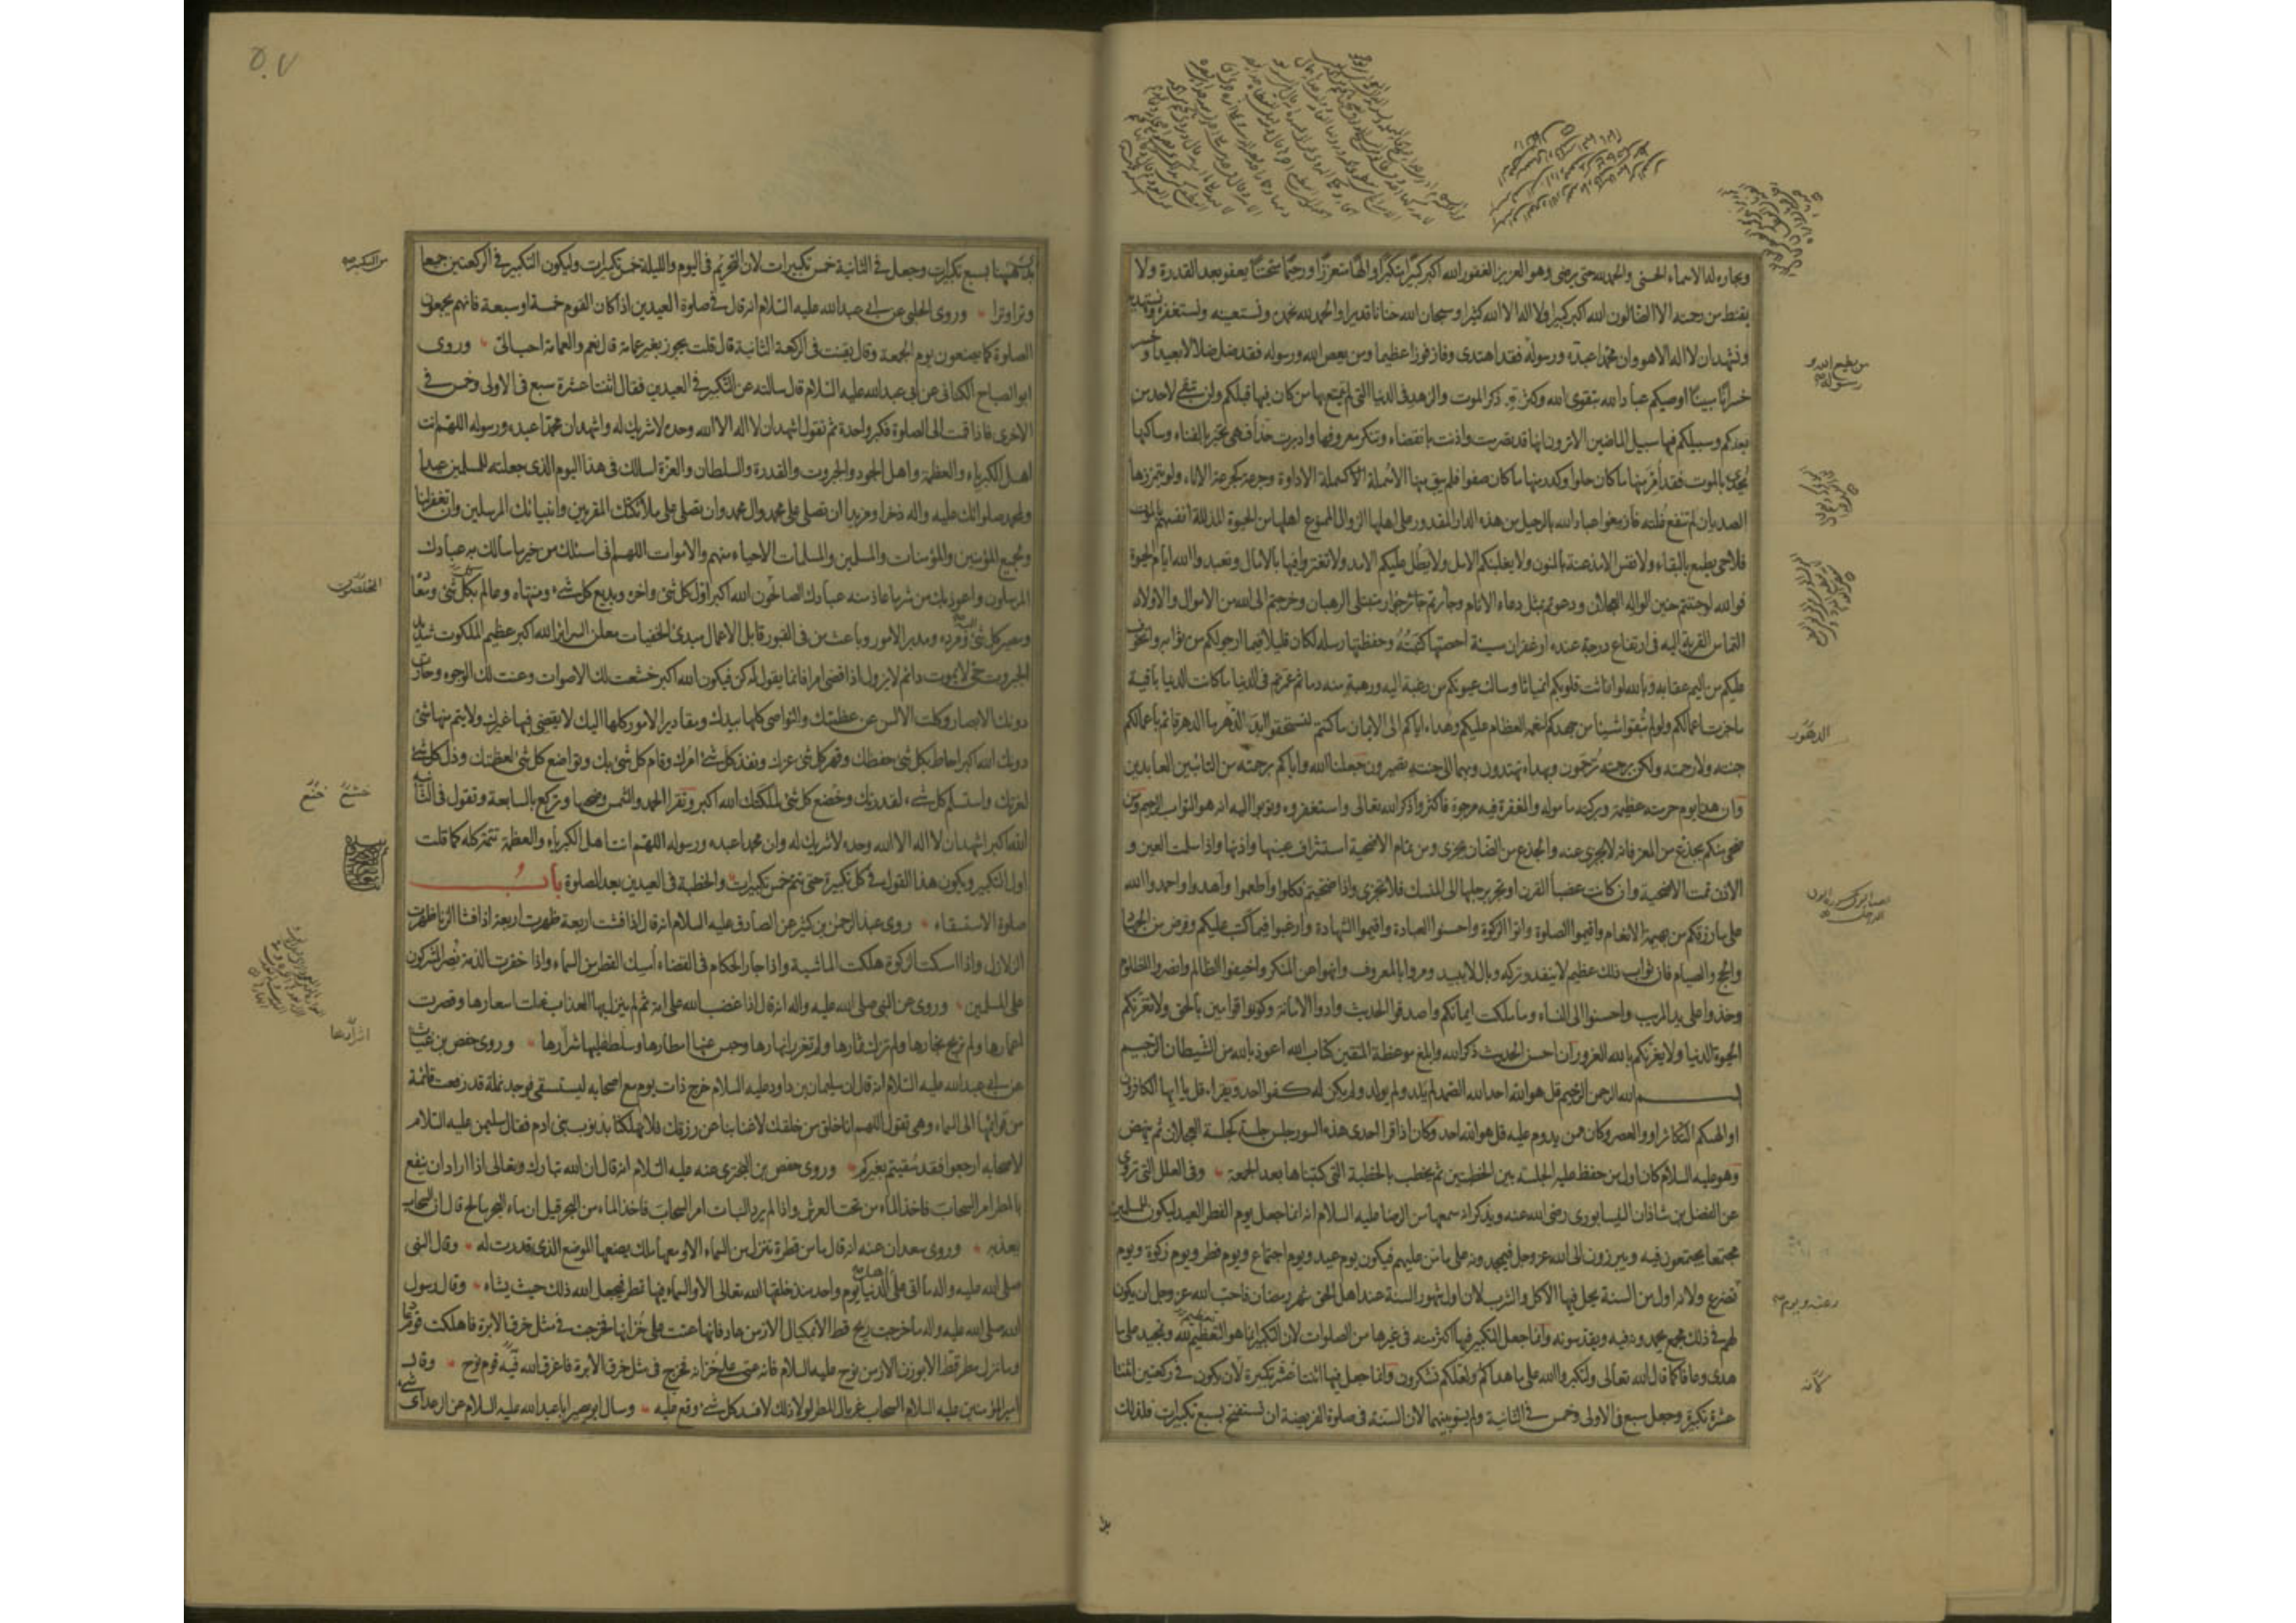 وبحاره له الاسماء الحسنى والحمد لله حتى يرضى وهو العزيز الغفور الله اكبر كبيرا متكبرا والها متعززا ورحيما متحننا يعفو بعد القدرة ولا
يقنط من رحمته الا الضالون الله اكبر كبيرا ولا اله الا الله كثيرا وسبحان الله حنانا قديرا والحمد لله نحمده ونستعينه ونستغفره ونستهديه
ونشهد ان لا اله الا هو وان محمدا عبده ورسوله فقد اهتدى وفاز فوزا عظيما ومن يعص الله ورسوله فقد ضل ضلالا بعيدا وخسر
خسرانا مبينا اوصيكم عباد الله بتقوى الله وكثرة ذكر الموت والزهد فى الدنيا التى لم يتمتع بها من كان فيها قبلكم ولن تبقى لاحد من
بعدكم وسبيلكم فيها سبيل الماضين الا ترون انها قد تصرمت واذنت بانقضاء وتنكر معروفها وادبرت حذاء فهى تخبر بالفناء وساكنها
يحدى بالموت فقد امر منها ما كان حلوا وكدر منها ما كان صفوا فلم يبق منها الا سملة كسملة الاداوة وجرعة كجرعة الاناء ولو يتمززها
الصديان لم تنقع غلته فازمعوا عباد الله بالرحيل من هذه الدار المقدور على اهلها الزوال الممنوع اهلها من الحيوة المذللة انفسهم بالموت
فلا حى يطمع بالبقاء ولا نفس الا مذعنة بالمنون ولا يغلبنكم الامل ولا يطل عليكم الامد ولا تغتروا فيها بالامال وتعبدوا الله ايام الحيوة
فوالله لو حننتم حنين الواله العجلان ودعوتم بمثل دعاء الانام وجأرتم جؤار متبتلى الرهبان وخرجتم الى الله من الاموال والاولاد
التماس القربة اليه فى ارتفاع درجة عنده او غفران سيئة احصتها كتبته وحفظتها رسله لكان قليلا فيما ارجو لكم من ثوابه واتخوف
عليكم من اليم عقابه وبالله لو انماثت قلوبكم انمياثا وسالت عيونكم من رغبة اليه ورهبة منه دما ثم عمرتم فى الدنيا ما كانت الدنيا باقية
ما جزت اعمالكم ولو لم تبقوا شيئا من جهدكم لنعمه العظام عليكم وهداه اياكم الى الايمان ما كنتم لتستحقوا ابد الدهر ما الدهر قائم باعمالكم
جنته ولا رحمته ولكن برحمته ترحمون وبهداه تهتدون وبهما الى جنته تصيرون جعلنا الله واياكم برحمته من التائبين العابدين
وان هذا يوم حرمته عظيمة وبركته مامولة والمغفرة فيه مرجوة فاكثروا ذكر الله تعالى واستغفروه وتوبوا اليه انه هو التواب الرحيم ومن
ضحى منكم بجذع من المعز فانه لا يجزى عنه والجذع من الضان يجزى ومن تمام الاضحية استشراف عينها واذنها واذا سلمت العين و
الاذن تمت الاضحية وان كانت عضباء القرن او تجر برجلها الى المنسك فلا تجزى واذا ضحيتم فكلوا واطعموا واهدوا واحمدوا الله
على ما رزقكم من بهيمة الانعام واقيموا الصلوة واتوا الزكوة واحسنوا العبادة واقيموا الشهادة وارغبوا فيما كتب عليكم وفرض من الجهاد
والحج والصيام فان ثواب ذلك عظيم لا ينفد وتركه وبال لا يبيد ومروا بالمعروف وانهوا عن المنكر واخيفوا الظالم وانصروا المظلوم
وخذوا على يد المريب واحسنوا الى النساء وما ملكت ايمانكم واصدقوا الحديث وادوا الامانة وكونوا قوامين بالحق ولا تغرنكم
الحيوة الدنيا ولا يغرنكم بالله الغرور ان احسن الحديث ذكر الله وابلغ موعظة المتقين كتاب الله اعوذ بالله من الشيطان الرجيم
بسم الله الرحمن الرحيم قل هو الله احد الله الصمد لم يلد ولم يولد ولم يكن له كفوا احد ويقرء قل يا ايها الكافرون
او الهيكم التكاثر او والعصر وكان مما يدوم عليه قل هو الله احد وكان اذا قرا احدى هذه السور جلس جلسة كجلسة العجلان ثم ينهض
وهو عليه السلام كان اول من حفظ عليه الجلسة بين الخطبتين ثم يخطب بالخطبة التى كتبناها بعد الجمعة وفى العلل التى تروى
عن الفضل بن شاذان النيسابورى رضى الله عنه ويذكر انه سمعها من الرضا عليه السلام انه انما جعل يوم الفطر العيد ليكون للمسلمين
مجتمعا يجتمعون فيه ويبرزون الى الله عز وجل فيمجدونه على ما من عليهم فيكون يوم عيد ويوم اجتماع ويوم فطر ويوم زكوة ويوم
تضرع ولانه اول يوم من السنة يحل فيها الاكل والشرب لان اول شهور السنة عند اهل الحق شهر رمضان فاحب الله عز وجل ان يكون
لهم فى ذلك مجمع يحمدونه فيه ويقدسونه وانما جعل التكبير فيها اكثر منه فى غيرها من الصلوات لان التكبير انما هو التعظيم لله وتمجيد على ما
هدى وعافا كما قال الله تعالى ولتكبروا الله على ما هداكم ولعلكم تشكرون وانما جعل فيها اثنتا عشر تكبيرة لان يكون فى ركعتين اثنتا
عشرة تكبيرة وجعل سبع فى الاولى وخمس فى الثانية ولم يسو بينهما لان السنة فى صلوة الفريضة ان تستفتح بسبع تكبيرات فلذلك
من يطع الله و
رسوله
الدهور
رغبة ويوم
لانه
٥٠٧
بدئ ههنا بسبع تكبيرات وجعل فى الثانية خمس تكبيرات لان التحريم فى اليوم والليلة خمس تكبيرات وليكون التكبير فى الركعتين جميعا
وترا وترا وروى الحلبى عن ابى عبدالله عليه السلام انه قال فى صلوة العيدين اذا كان القوم خمسة او سبعة فانهم يجمعون
الصلوة كما يصنعون يوم الجمعة وقال يقنت فى الركعة الثانية قال قلت يجوز بغير عمامة قال نعم والعمامة احب الى وروى
ابو الصباح الكنانى عن ابى عبدالله عليه السلام قال سالته عن التكبير فى العيدين فقال اثنتا عشرة سبع فى الاولى وخمس فى
الاخرى فاذا قمت الى الصلوة فكبر واحدة ثم تقول اشهد ان لا اله الا الله وحده لا شريك له واشهد ان محمدا عبده ورسوله اللهم انت
اهل الكبرياء والعظمة واهل الجود والجبروت والقدرة والسلطان والعزة اسالك فى هذا اليوم الذى جعلته للمسلمين عيدا
ولمحمد صلواتك عليه واله ذخرا ومزيدا ان تصلى على محمد وال محمد وان تصلى على ملائكتك المقربين وانبيائك المرسلين وان تغفر لنا
ولجميع المؤمنين والمؤمنات والمسلمين والمسلمات الاحياء منهم والاموات اللهم انى اسئلك من خير ما سالك به عبادك
المرسلون واعوذ بك من شر ما عاذ منه عبادك الصالحون الله اكبر اول كل شئ واخره وبديع كل شئ ومنتهاه وعالم بكل شئ ومعاده
ومصير كل شئ ومرده ومدبر الامور وباعث من فى القبور قابل الاعمال مبدئ الخفيات معلن السرائر الله اكبر عظيم الملكوت شديد
الجبروت حى لا يموت دائم لا يزول اذا قضى امرا فانما يقول له كن فيكون الله اكبر خشعت لك الاصوات وعنت لك الوجوه وحارت
دونك الابصار وكلت الالسن عن عظمتك والنواصى كلها بيدك ومقادير الامور كلها اليك لا يقضى فيها غيرك ولا يتم منها شئ
دونك الله اكبر احاط بكل شئ حفظك وقهر كل شئ عزك ونفذ كل شئ امرك وقام كل شئ بك وتواضع كل شئ لعظمتك وذل كل شئ
لعزتك واستسلم كل شئ لقدرتك وخضع كل شئ لملكتك الله اكبر وتقرا الحمد والشمس وضحيها وتركع بالسابعة وتقول فى الثانية
الله اكبر اشهد ان لا اله الا الله وحده لا شريك له وان محمدا عبده ورسوله اللهم انت اهل الكبرياء والعظمة تتمه كله كما قلت
اول التكبير ويكون هذا القول فى كل تكبيرة حتى تتم خمس تكبيرات والخطبة فى العيدين بعد الصلوة باب
صلوة الاستسقاء وروى عبد الرحمن بن كثير عن الصادق عليه السلام انه قال اذا فشت اربعة ظهرت اربعة اذا فشا الزنا ظهرت
الزلازل واذا امسكت الزكوة هلكت الماشية واذا جار الحكام فى القضاء امسك القطر من السماء واذا خفرت الذمة نصر المشركون
على المسلمين وروى عن النبى صلى الله عليه واله انه قال اذا غضب الله على امة ثم لم ينزل بها العذاب غلت اسعارها وقصرت
اعمارها ولم تربح تجارها ولم تزك ثمارها ولم تغزر انهارها وحبس عنها امطارها وسلط عليها شرارها وروى حفص بن غياث
عن ابى عبدالله عليه السلام انه قال ان سليمان بن داود عليه السلام خرج ذات يوم مع اصحابه ليستسقى فوجد نملة قد رفعت قائمة
من قوائمها الى السماء وهى تقول اللهم انا خلق من خلقك لا غنا بنا عن رزقك فلا تهلكنا بذنوب بنى ادم فقال سليمن عليه السلام
لاصحابه ارجعوا فقد سقيتم بغيركم وروى حفص بن البخترى عنه عليه السلام انه قال ان الله تبارك وتعالى اذا اراد ان ينفع
بالمطر امر السحاب فاخذ الماء من تحت العرش واذا لم يرد النبات امر السحاب فاخذ الماء من البحر قيل ان ماء البحر مالح قال ان السحاب
يعذبه وروى سعدان عنه انه قال ما من قطرة تنزل من السماء الا ومعها ملك يضعها الموضع الذى قدرت له وقال النبى
صلى الله عليه واله ما اتى على اهل الدنيا يوم واحد منذ خلقها الله تعالى الا والسماء فيها تمطر فيجعل الله ذلك حيث يشاء وقال رسول
الله صلى الله عليه واله ما خرجت ريح قط الا بمكيال الا زمن عاد فانها عتت على خزانها فخرجت فى مثل خرق الابرة فاهلكت قوم عاد
وما نزل مطر قط الا بوزن الا زمن نوح عليه السلام فانه عتى على خزانه فخرج فى مثل خرق الابرة فاغرق الله فيه قوم نوح وقال
امير المؤمنين عليه السلام السحاب غربال المطر لولا ذلك لافسد كل شئ وقع عليه وسال ابو بصير ابا عبدالله عليه السلام عن الرعد اى شئ
من التكبير
المخلصون
خشع خضع
اشرارها